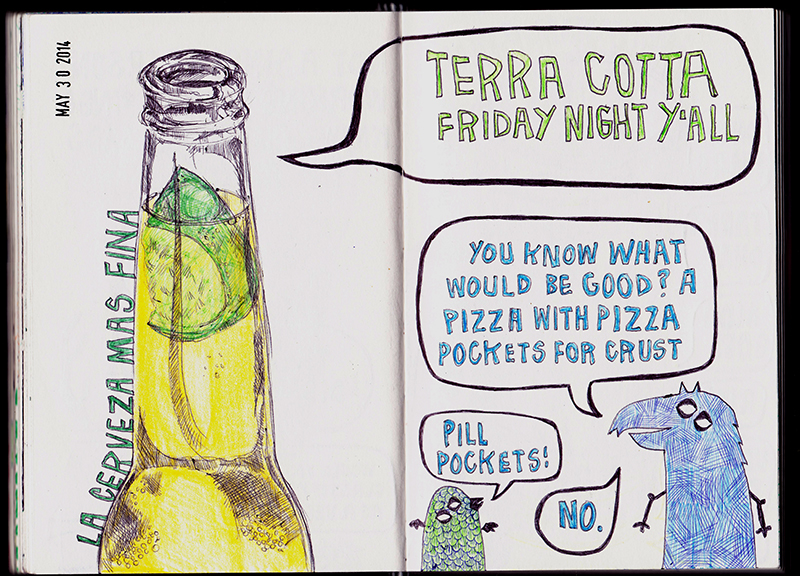 MAY 30 2014
LA CERVEZA MAS FINA
TERRA COTTA
FRIDAY NIGHT Y'ALL
YOU KNOW WHAT
WOULD BE GOOD? A
PIZZA WITH PIZZA
POCKETS FOR CRUST
PILL
POCKETS!
NO.